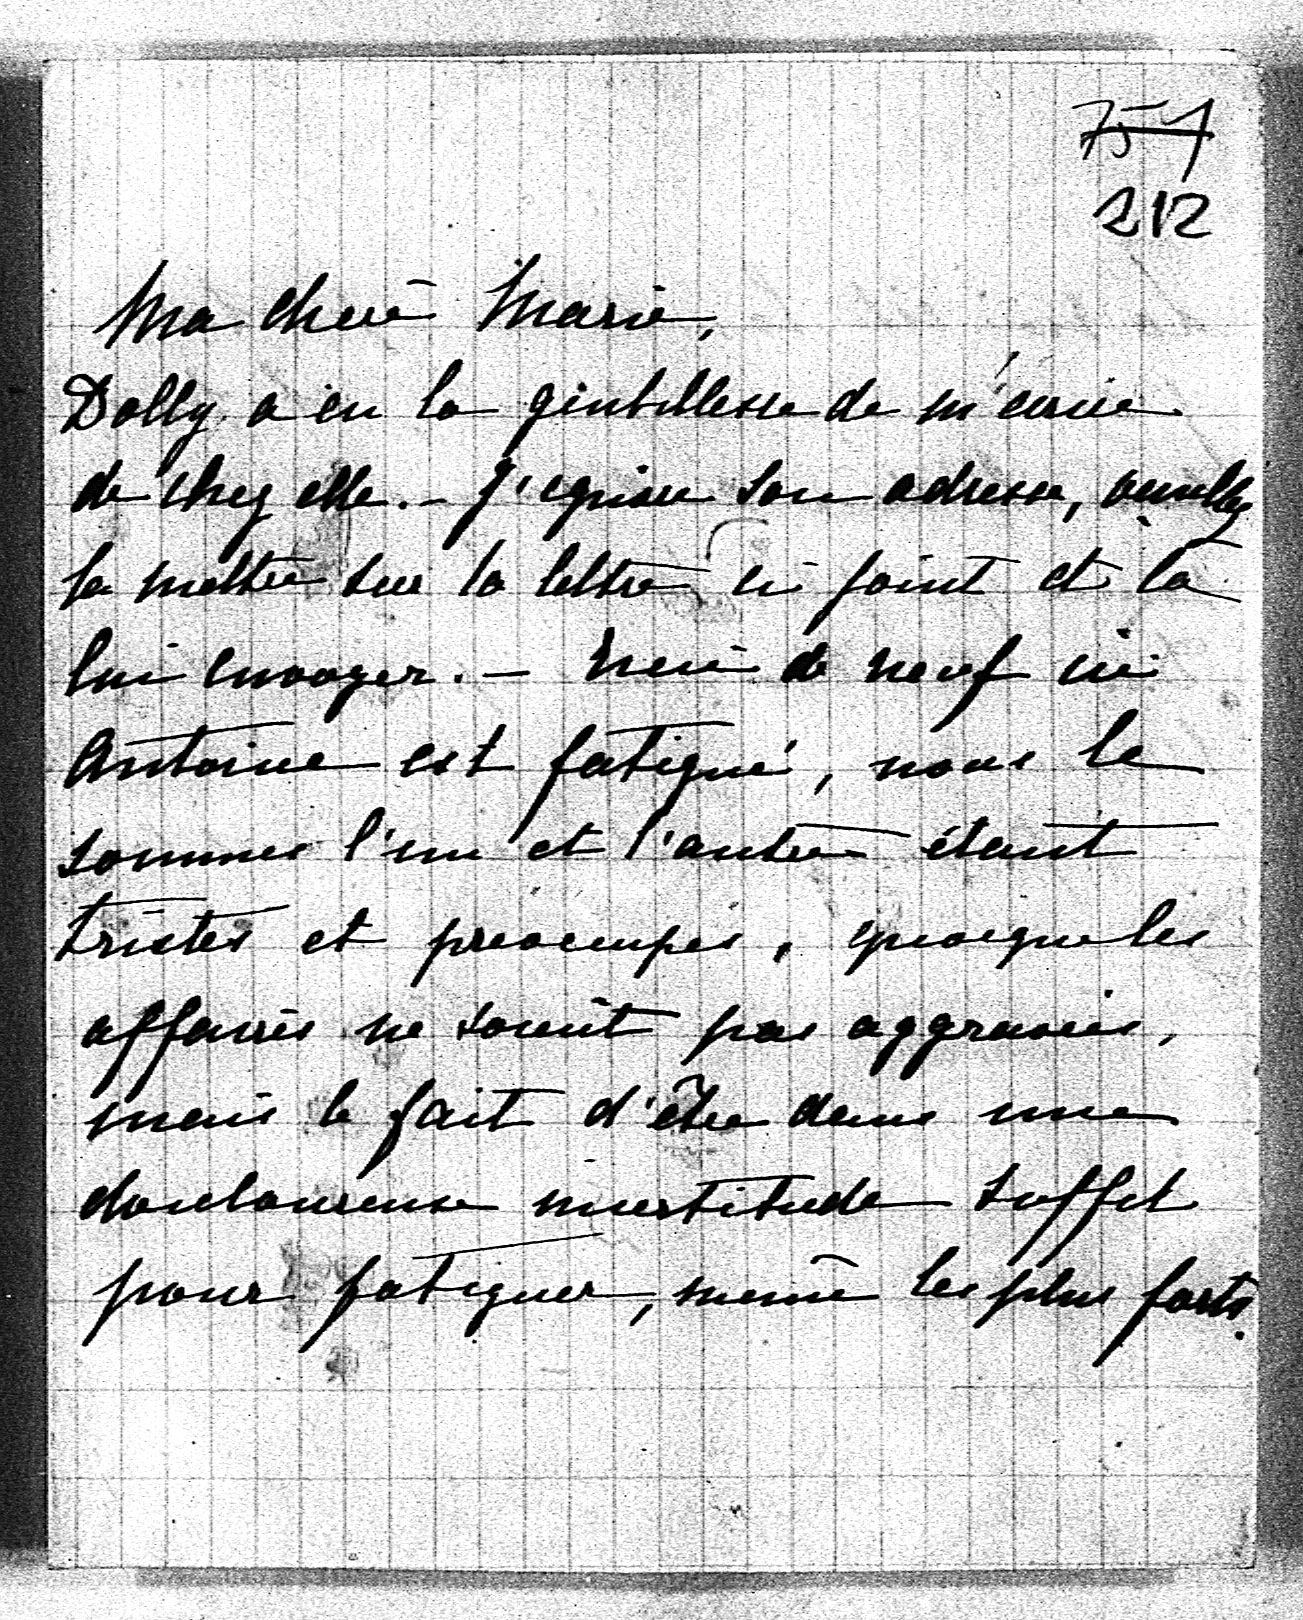 757
212
Ma chère Marie,
Dolly a eu la gentillesse de m'écrire
de chez elle. – J'ignore son adresse, veuillez
la mettre sur la lettre ci joint et la
lui envoyer. – Rien de neuf ici
Antoine est fatigué, nous le
sommes l'un et l'autre étant
tristes et preoccupés, quoique les
affaires ne soient pas aggravées,
mais le fait d'être dans une
douloureuse incertitude suffit
pour fatiguer, même les plus forts.